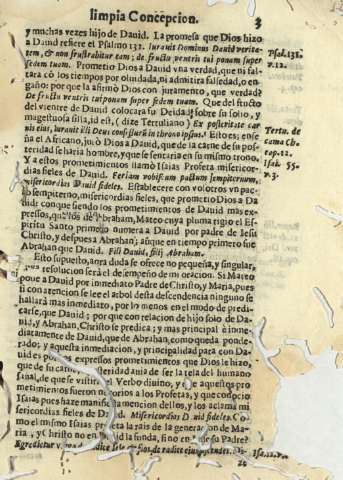 limpia Concepcion. 3
y muchas vezes hijo de Dauid. La promesa que Dios hizo
a Dauid refiere el Psalmo 131. Iurauit Dominus Dauid verita-
tem, & non frustrabitur eam; de fructu ventris tui ponam super
sedem tuam. Prometio Dios a Dauid vna verdad, que ni fal-
tara có los tiempos por oluidada, ni admitira falsedad, o en-
gaño: por que la afirmò Dios con juramento, que verdad?
De fructu ventris tui ponam super sedem tuam. Que del fructo
del vientre de Dauid colocara su Deidad sobre su solio, y
magestuosa silla, id est, (dize Tertuliano) Ex posteritate car-
nis eius, iurauit illi Deus consessurũ in throno ipsius. Esto es; ense
ña el Africano, juró Dios a Dauid, que de la carne de su pos-
teridad se haria hombre, y que se sentaria en su mismo trono,
Y a estos prometimientos llamò Isaias Profeta misericor-
dias fieles de Dauid. Feriam vobiscum pactum sempiternum,
misericordias Dauid fideles. Establecere con vosotros vn pac-
to sempiterno, misericordias fieles, que prometio Dios a Da
uid: con que siendo los prometimientos de Dauid mas ex-
pressos, que los de Abraham, Mateo cuya pluma rigio el Es-
piritu Santo primero numera a Dauid por padre de Iesu
Christo, y despues a Abrahan; aũque en tiempo primero fue
Abrahan que Dauid. Filij Dauid, filij Abraham.
Esto supuesto, antra duda se ofrece no pequeña, y singular,
cuya resolucion será el desempeño de mi oracion. Si Mateo
pone a Dauid por immediato Padre de Christo, y Maria, pues
si con atencion se lee el arbol desta descendencia ninguno se
hallará mas inmediato, por lo menos en el modo de predi-
carse, que Dauid; por que con relacion de hijo solo de Da-
uid, y Abrahan, Christo se predica; y mas principal è inme-
diatamente de Dauid, que de Abrahan, como queda ponde-
rado; y aquesta inmediacion, y principalidad para con Da-
uid es por los expressos prometimientos que Dios le hizo,
que de su carne, y posteridad auia de ser la tela del humano
sayal, de que se vistiria el Verbo diuino, y de aquestos pro
metimientos fueron notorios a los Profetas, y que conocio
Isaias pues haze manifiesta mencion dellos, y los aclama mi
sericordias fieles de Dauid. Misericordias Dauid fideles. Co
mo el mismo Isaias Profeta la rais de la generacion de Ma-
ria, y Christo no en Dauid la funda, sino en su Padre?
Egredietur virga de radice Iesse, & flos de radice eius ascendet. Di-
ze
Psal. 131.
v. 12.
Tertu. de
carne Ch.
cap. 12.
Isai. 55.
v. 3.
Isa. 11. v.